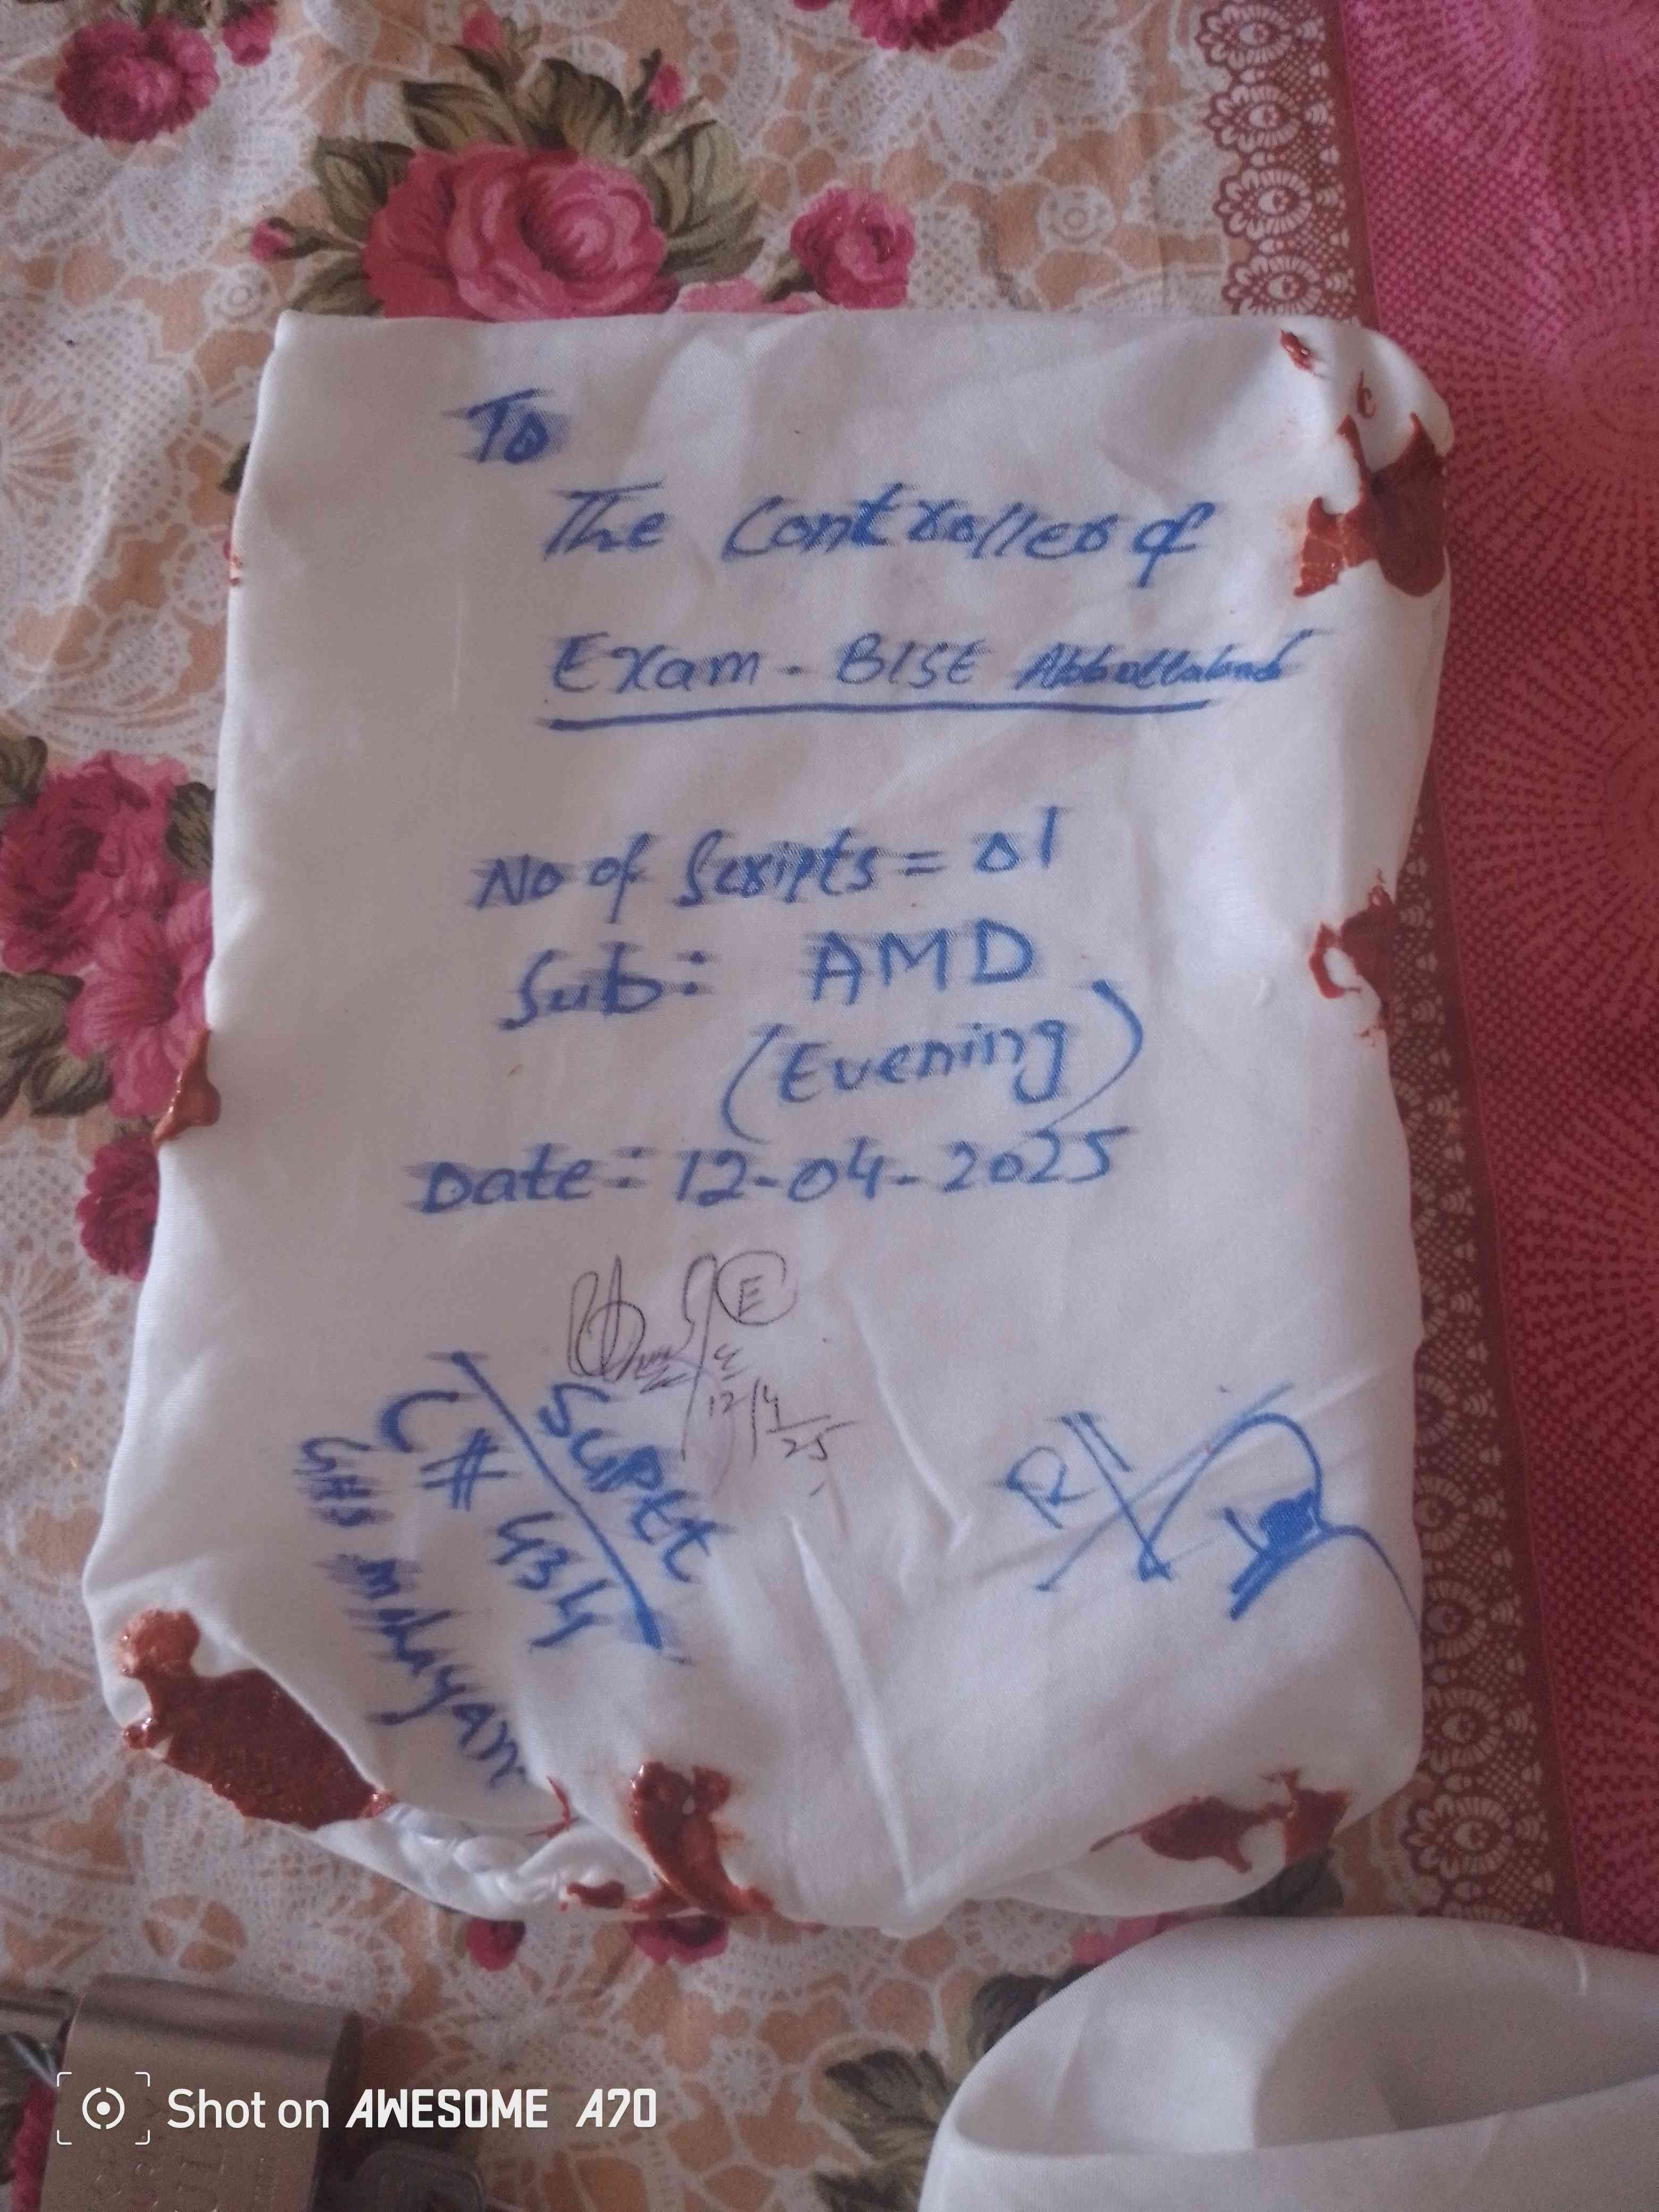 To
The Controller of
Exam - BISE Abbottabad
No of Scripts = 01
Sub: AMD
(Evening)
Date: 12-04-2025
E
12/4/25
Suptt
C# 434
GHS
RI
Shot on AWESOME A70